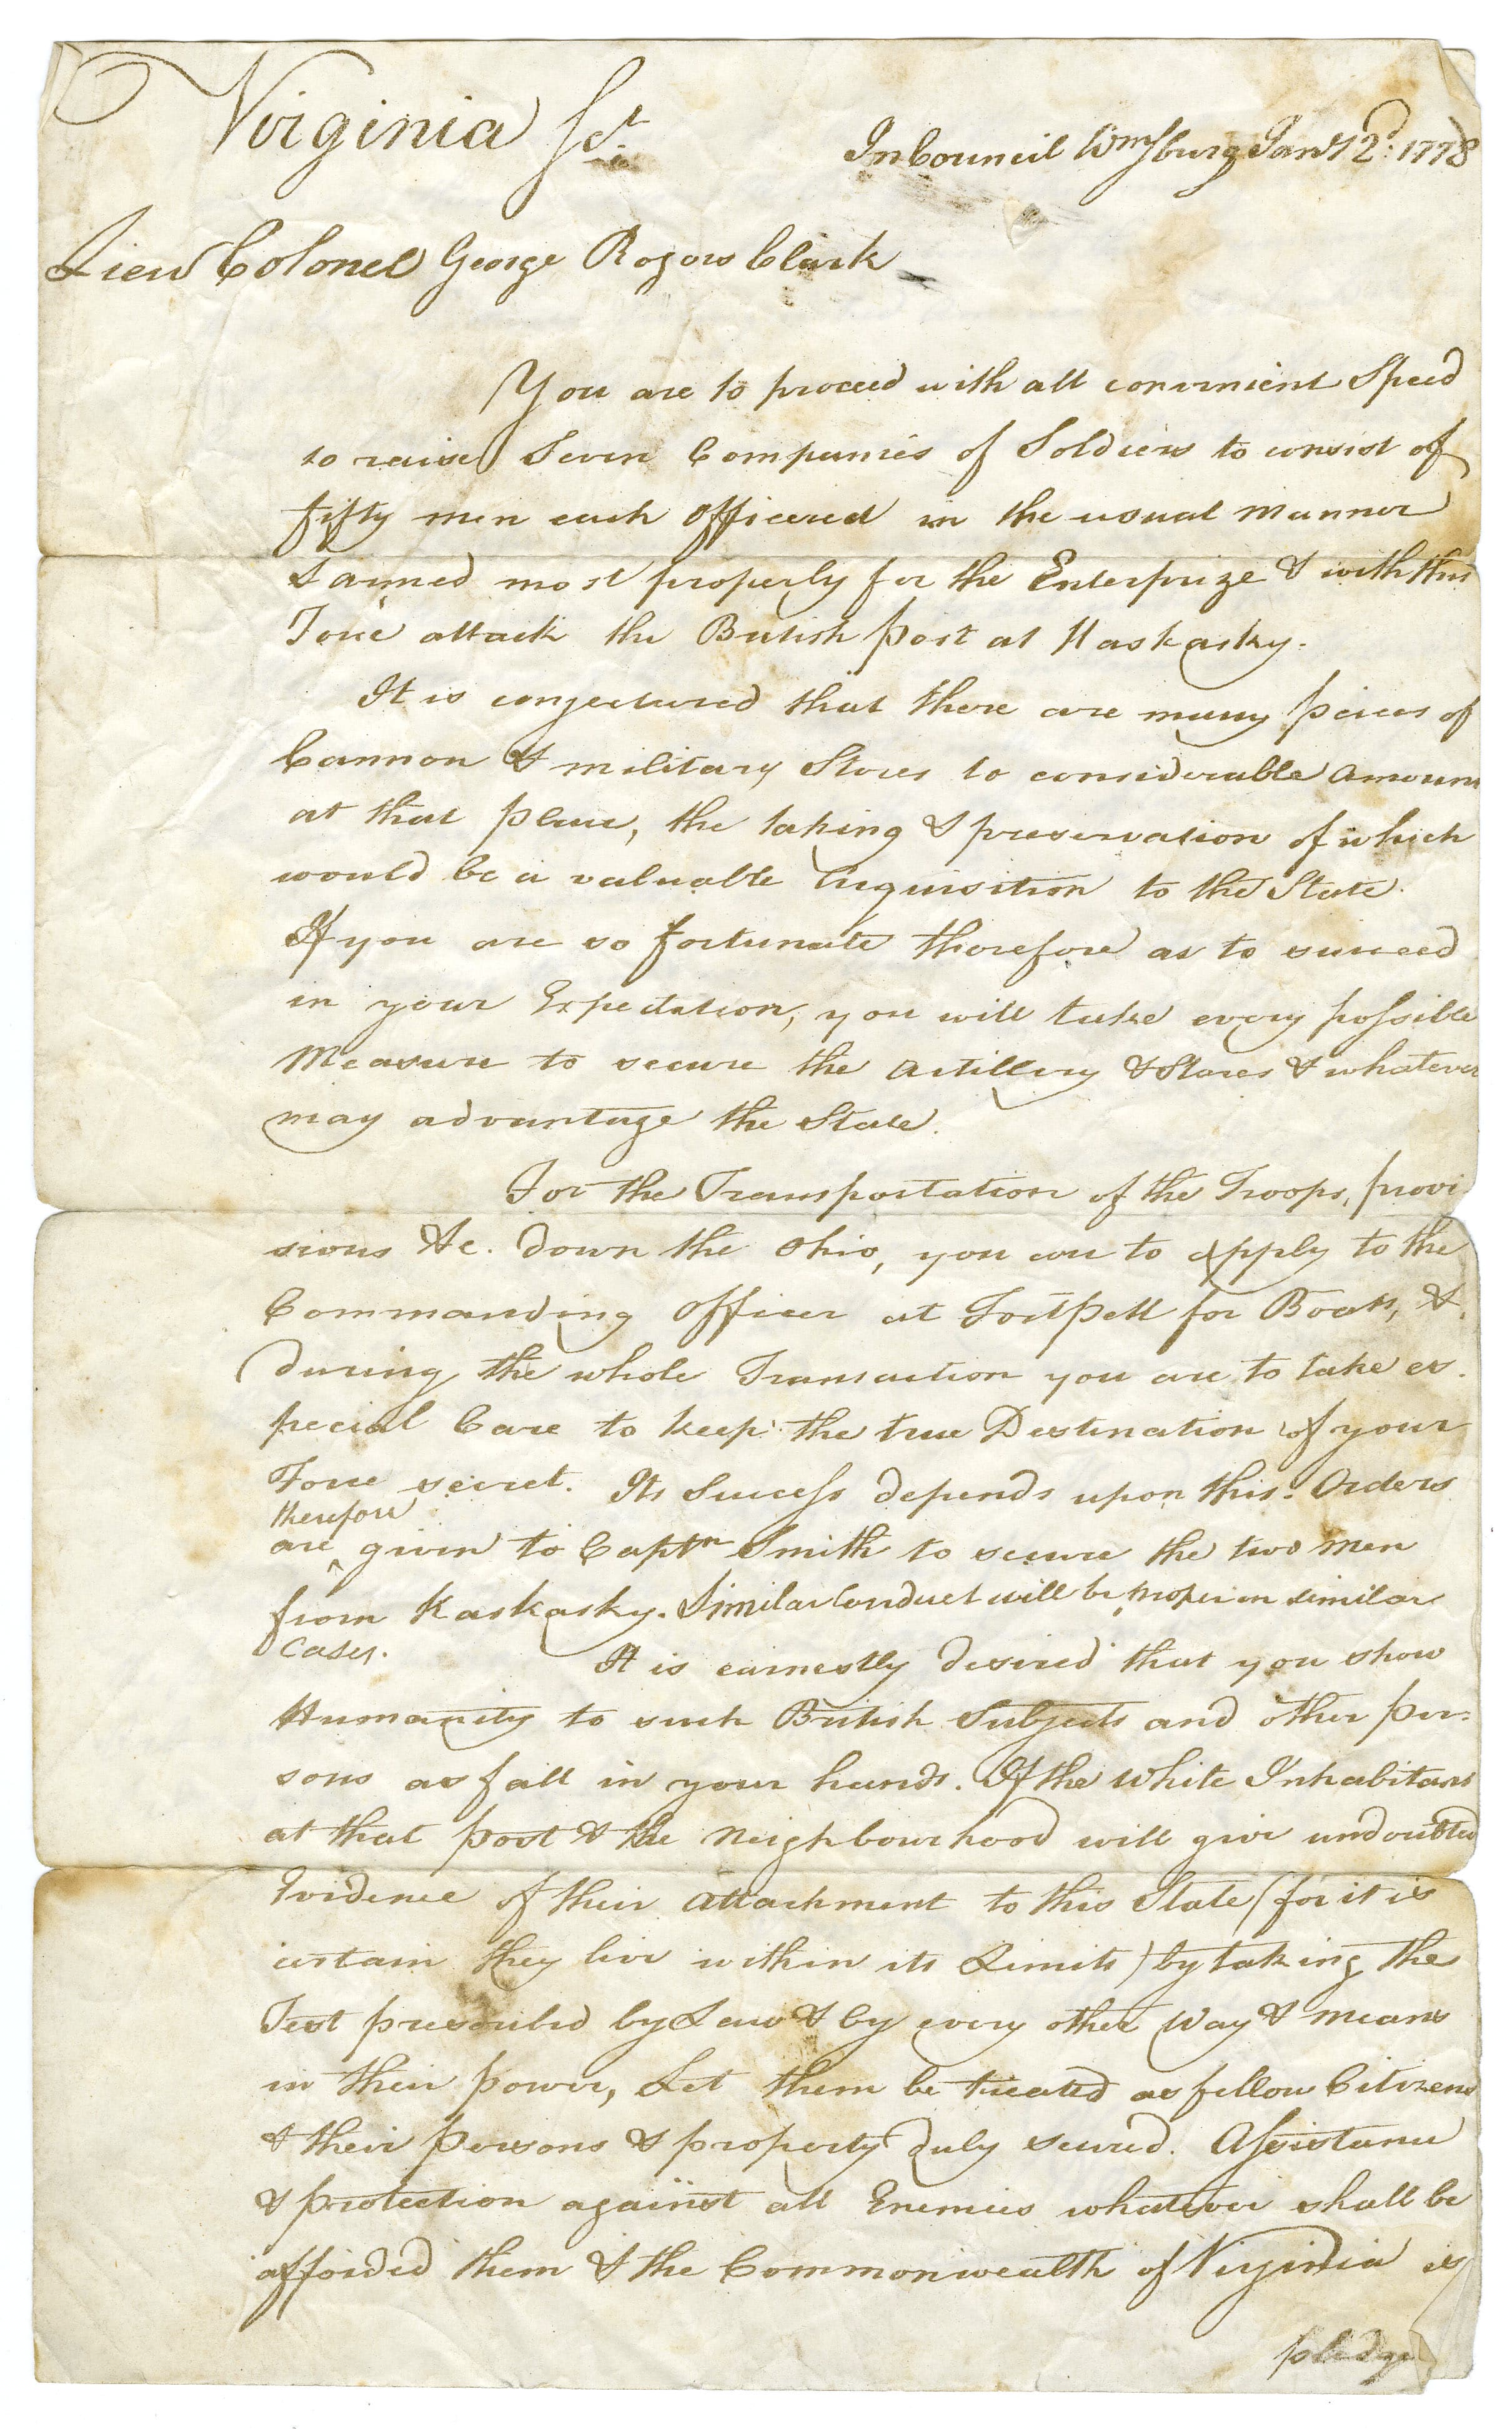 Virginia Sct.
In Council Wmsburg Jany 2d. 1778
Lieu Colonel George Rogers Clark
You are to proceed with all convenient Speed
to raise Seven Companies of Soldiers to consist of
fifty men each officered in the usual manner
& armed most properly for the Enterprize & with this
Force attack the British post at Kaskasky.
It is conjectured that there are many peices of
Cannon & military Stores to considerable amount
at that place, the taking & preservation of which
would be a valuable acquisition to the State.
If you are so fortunate therefore as to succeed
in your Expectation, you will take every possible
Measure to secure the artillery & Stores & whatever
may advantage the State.
For the Transportation of the Troops, provi
sions &c. down the Ohio, you are to apply to the
Commanding officer at Fort Pitt for Boats, &.
during the whole Transaction you are to take es.
pecial Care to keep the true Destination of your
Force secret. Its Success depends upon this. Orders
therefore
are given to Captn Smith to secure the two men
from Kaskasky. Similar Conduct will be proper in similar
Cases.
It is earnestly desired that you show
Humanity to such British Subjects and other per:
sons as fall in your hands. If the white Inhabitants
at that post & the neighbourhood will give undoubted
Evidence of their attachment to this State (for it is
certain they live within its Limits) by taking the
Test prescribed by Law & by every other way & means
in their power, Let them be treated as fellow Citizens
& their persons & property duly secured. Assistance
& protection against all Enemies whatever shall be
afforded them & the Commonwealth of Virginia is
pledge